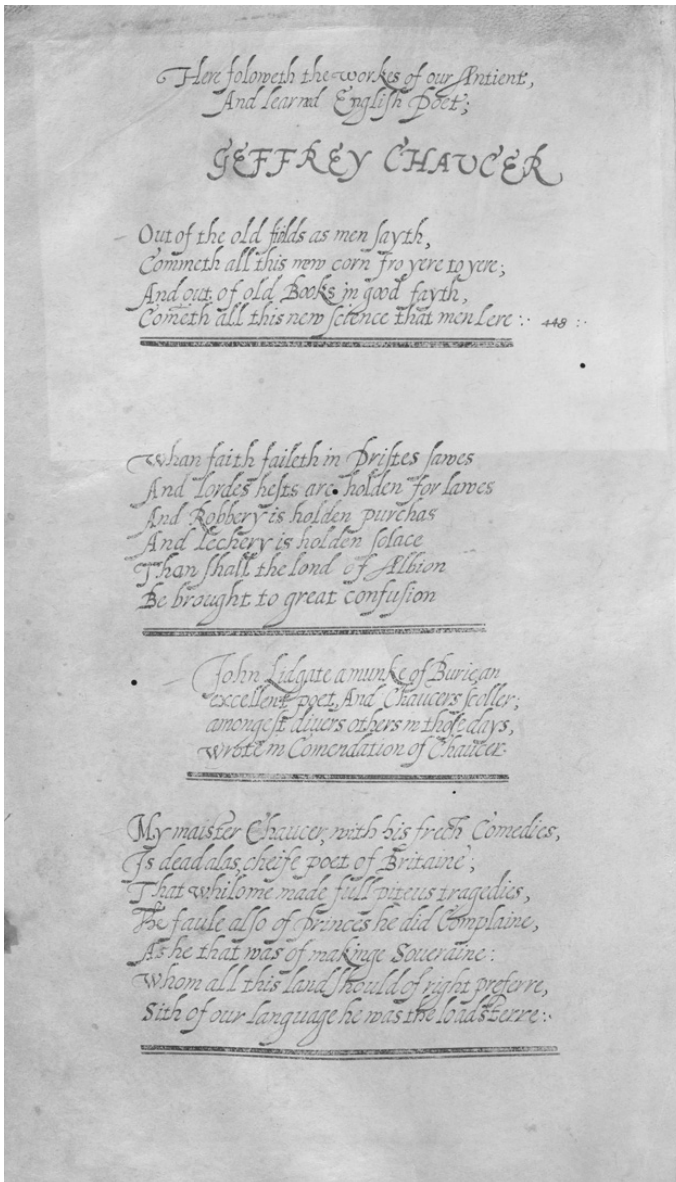 Here foloweth the workes of our Antient,
And learned English Poet;
GEFFREY CHAUCER
Out of the old fields as men sayth,
Commeth all this new corn fro yere to yere;
And out of old Books in good fayth,
Cometh all this new science that men Lere :· 448 :·
Whan faith faileth in Pristes sawes
And Lordes hests are holden for lawes
And Robbery is holden purchas
And Lechery is holden solace
Than shall the lond of Albion
Be brought to great confusion
John Lidgate a munke of Burie, an
excellent poet, And Chaucers scoller;
amongest divers others in those days,
wrote in Comendation of Chaucer.
My maister Chaucer, with his fresh Comedies,
Is dead alas, cheife poet of Britaine;
That whilome made full piteus tragedies,
The faule also of Princes he did Complaine,
As he that was of makinge Soueraine:
Whom all this land should of right preferre,
Sith of our language he was the loadsterre :·